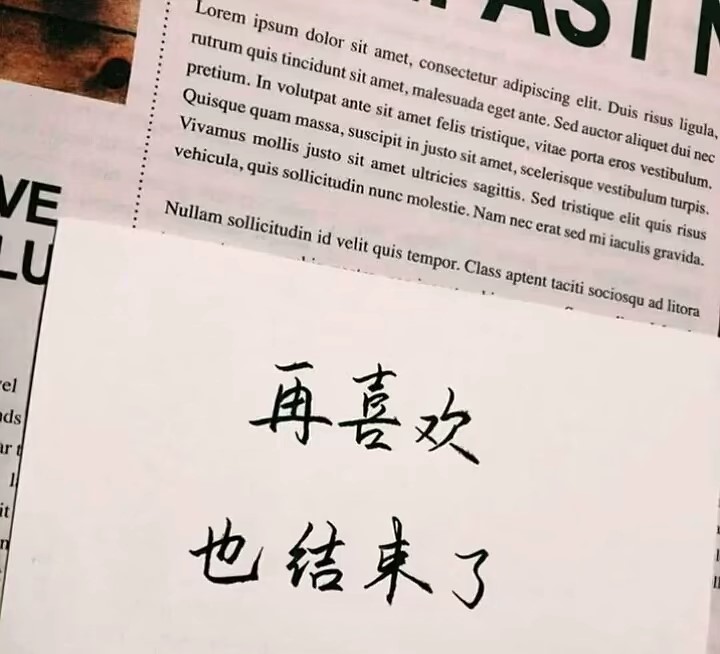 AST
Lorem ipsum dolor sit amet, consectetur adipiscing elit. Duis risus ligula,
rutrum quis tincidunt sit amet, malesuada eget ante. Sed auctor aliquet dui nec
pretium. In volutpat ante sit amet felis tristique, vitae porta eros vestibulum.
Quisque quam massa, suscipit in justo sit amet, scelerisque vestibulum turpis.
Vivamus mollis justo sit amet ultricies sagittis. Sed tristique elit quis risus
vehicula, quis sollicitudin nunc molestie. Nam nec erat sed mi iaculis gravida.
Nullam sollicitudin id velit quis tempor. Class aptent taciti sociosqu ad litora
VE
LU
再喜欢
也结束了